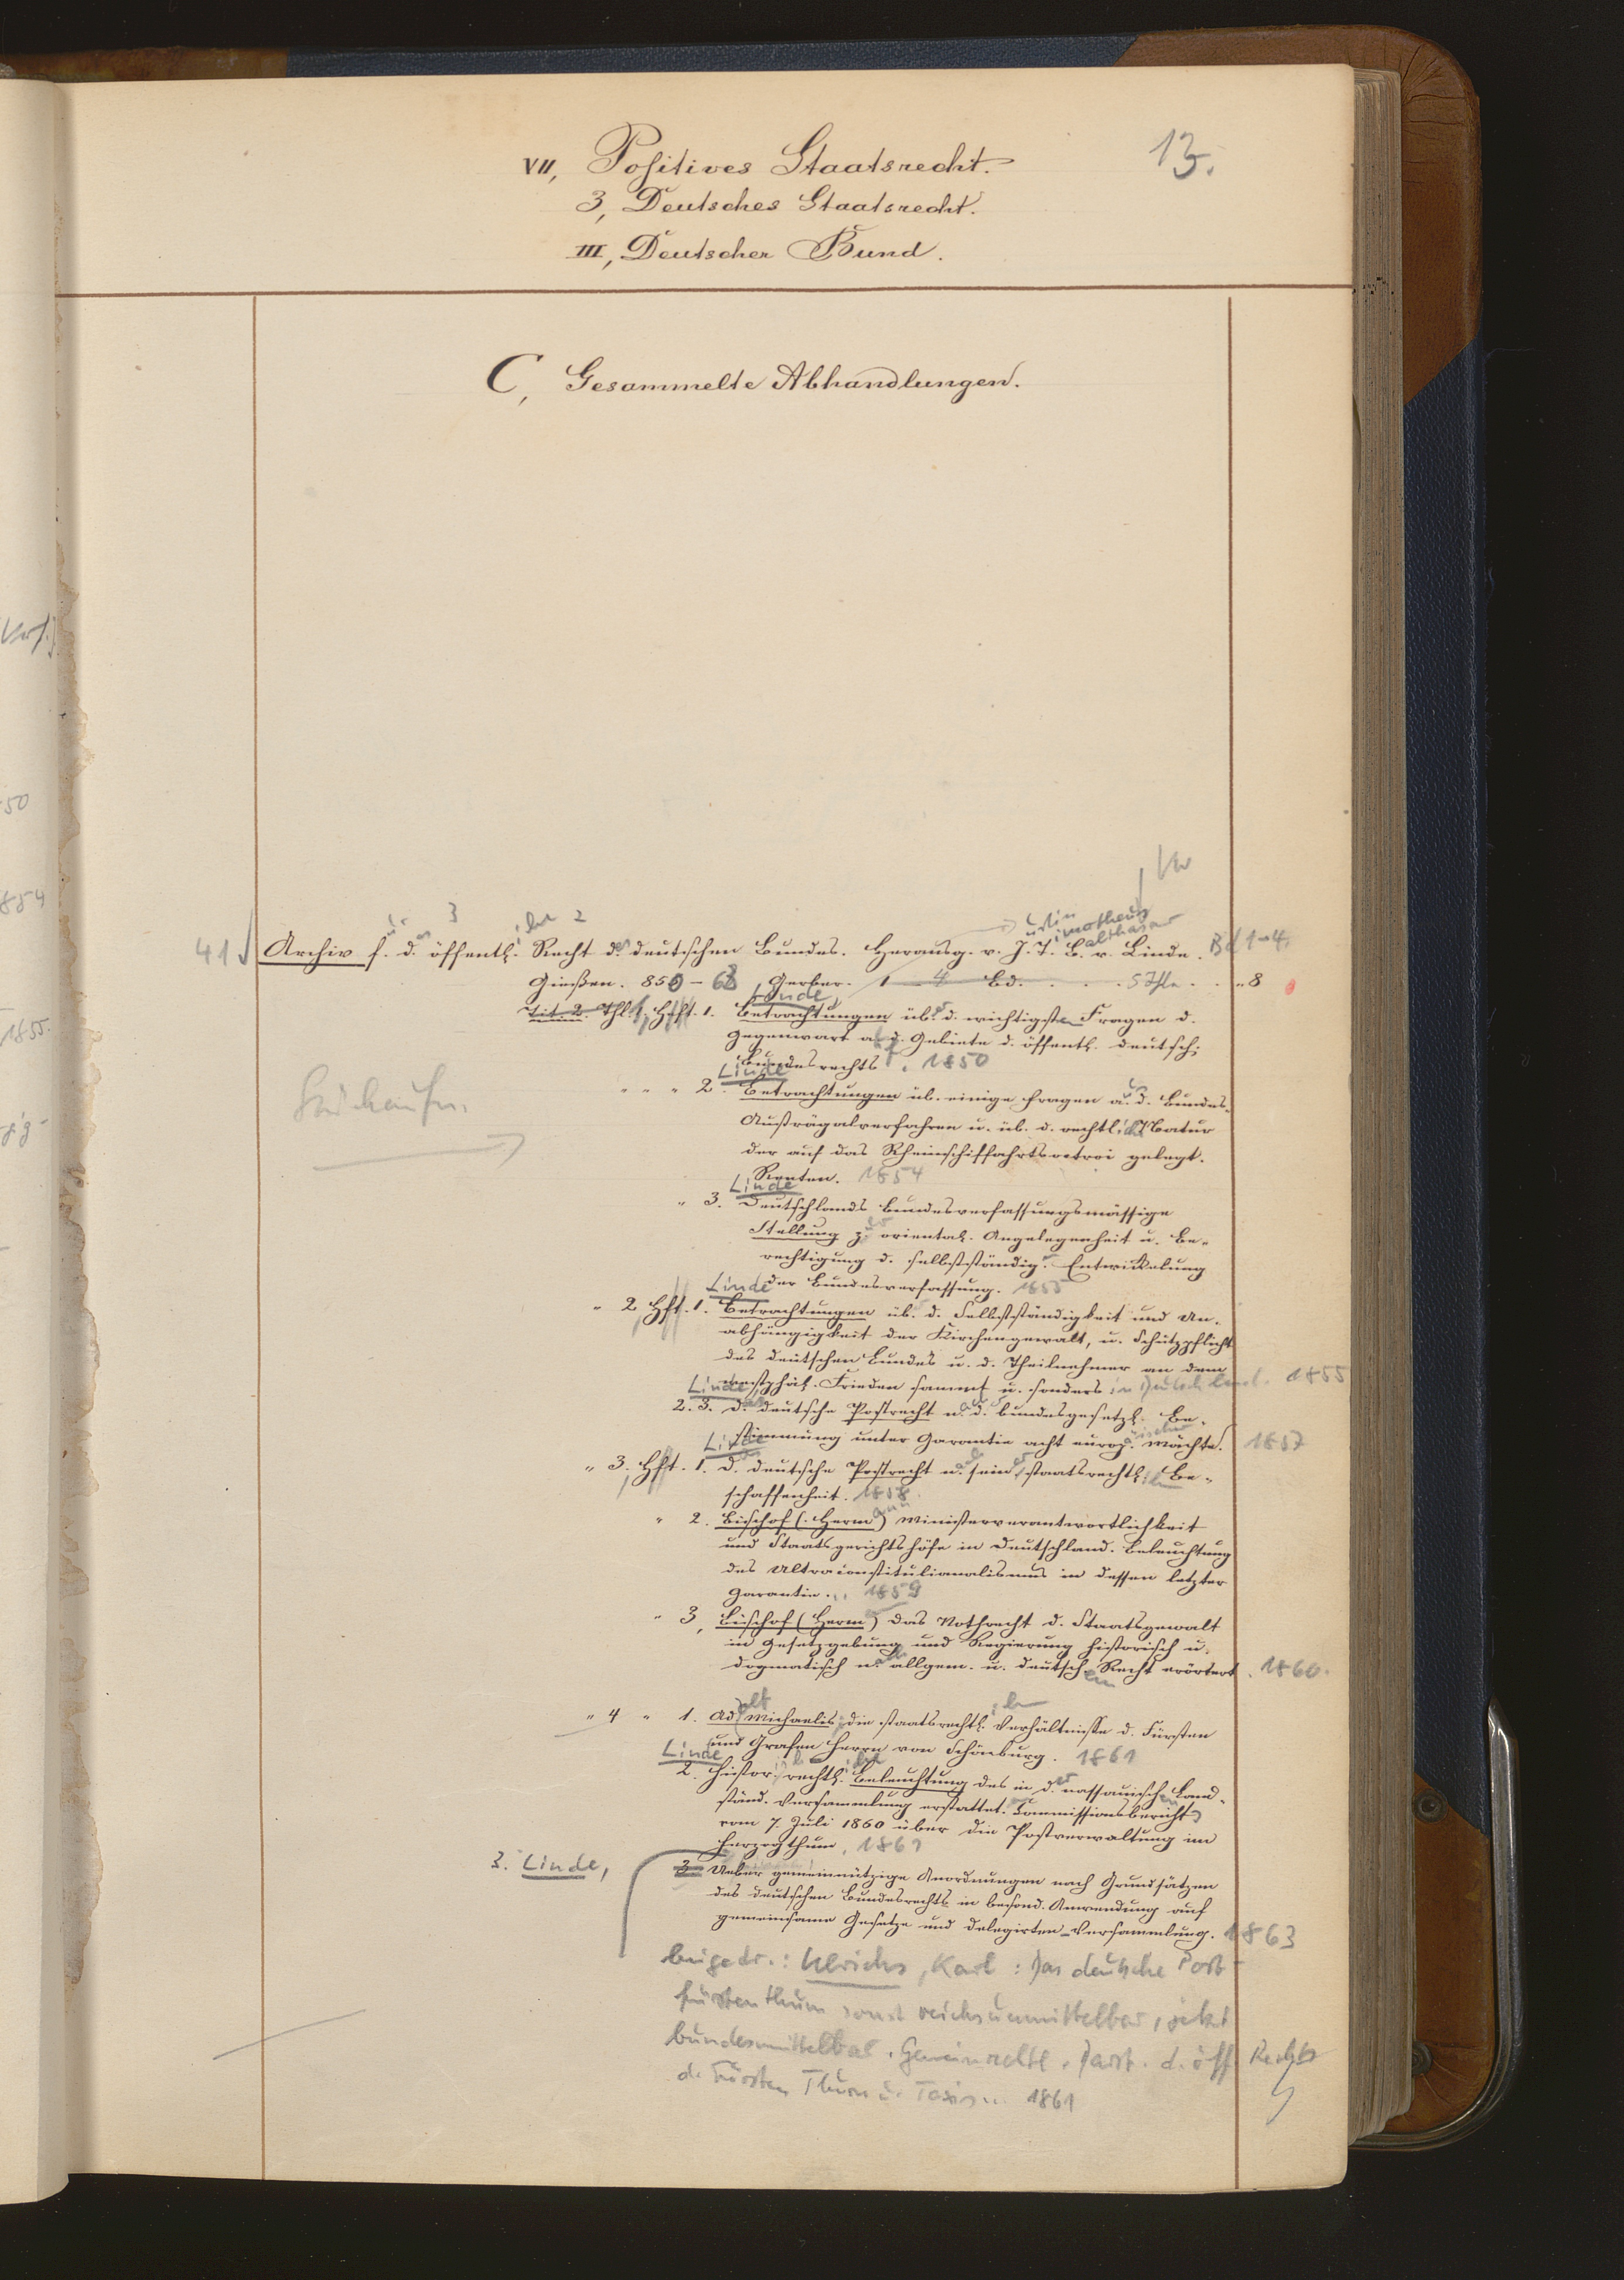 VII, Positives Staatsrecht.
13.
3, Deutsches Staatsrecht.
III, Deutscher Bund.
C, Gesammelte Abhandlungen.
41 Archiv f. d. öffentl. Recht d. deutschen Bundes. Herausg. v. J. T. B. v. Linde. Bd 1-4.
Gießen. 850 - 63 Gerber. 1 - 4 Bd. . . . 5 Thle. . . „ 8
Tit. 2. Thl. 1. Hft. 1. Linde Betrachtungen üb. d. wichtigsten Fragen d.
Gegenwart a. d. Gebiete d. öffentl. deutsch.
Bundesrechts. 1850
„ „ „ 2. Linde Betrachtungen üb. einige Fragen a. d. Bundes-
Austrägalverfahren u. üb. d. rechtliche Natur
der auf das Rheinschiffahrtsoctroi gelegt.
Renten. 1854
„ 3. Linde Deutschlands bundesverfassungsmässige
Stellung z. oriental. Angelegenheit u. Be-
rechtigung d. selbstständig. Entwickelung
der Bundesverfassung. 1855
„ 2 Hft. 1. Linde Betrachtungen üb. d. Selbstständigkeit und Un-
abhängigkeit der Kirchengewalt, u. Schutzpflicht
des deutschen Bundes u. d. Theilnehmer an dem
westphäl. Frieden sammt u. sonders in Deutschland. 1855
2. 3. Linde, d. deutsche Postrecht n. d. bundesgesetzl. Be-
stimmung unter Garantie acht europ. Mächte. 1857
„ 3. Hft. 1. Linde d. deutsche Postrecht n. seiner staatsrechtl. Be-
schaffenheit. 1858.
„ 2. Bischof (Hermann) Ministerverantwortlichkeit
und Staatsgerichtshöfe in Deutschland. Beleuchtung
des Ultraconstitutionalismus in dessen letzter
Garantie... 1859
„ 3, Bischof (Herm) das Nothrecht d. Staatsgewalt
in Gesetzgebung und Regierung historisch u.
dogmatisch n. allgem. u. deutschen Recht erörtert. 1860.
„ 4 „ 1. Ad Michaelis, die staatsrechtl. Verhältnisse d. Fürsten
und Grafen Herrn von Schönburg. 1861
2. Linde Histor. rechtl. Beleuchtung des in d. nassauischen Land-
ständ. Versammlung erstattet. Commissionsberichts
vom 7. Juli 1860 über die Postverwaltung im
Herzogthum. 1861
3. Linde, 3. Ueber gemeinnützige Anordnungen nach Grundsätzen
des deutschen Bundesrechts in besond. Anwendung auf
gemeinsame Gesetze und Delegirten-Versammlung. 1863
beigedr.: Ulrichs, Karl: Das deutsche Post-
fürstenthum sonst reichsunmittelbar, jetzt
bundesunmittelbar. Gemeinrechtl. Darst. d. öff. Rechts
d. Fürsten Thurn u. Taxis... 1861